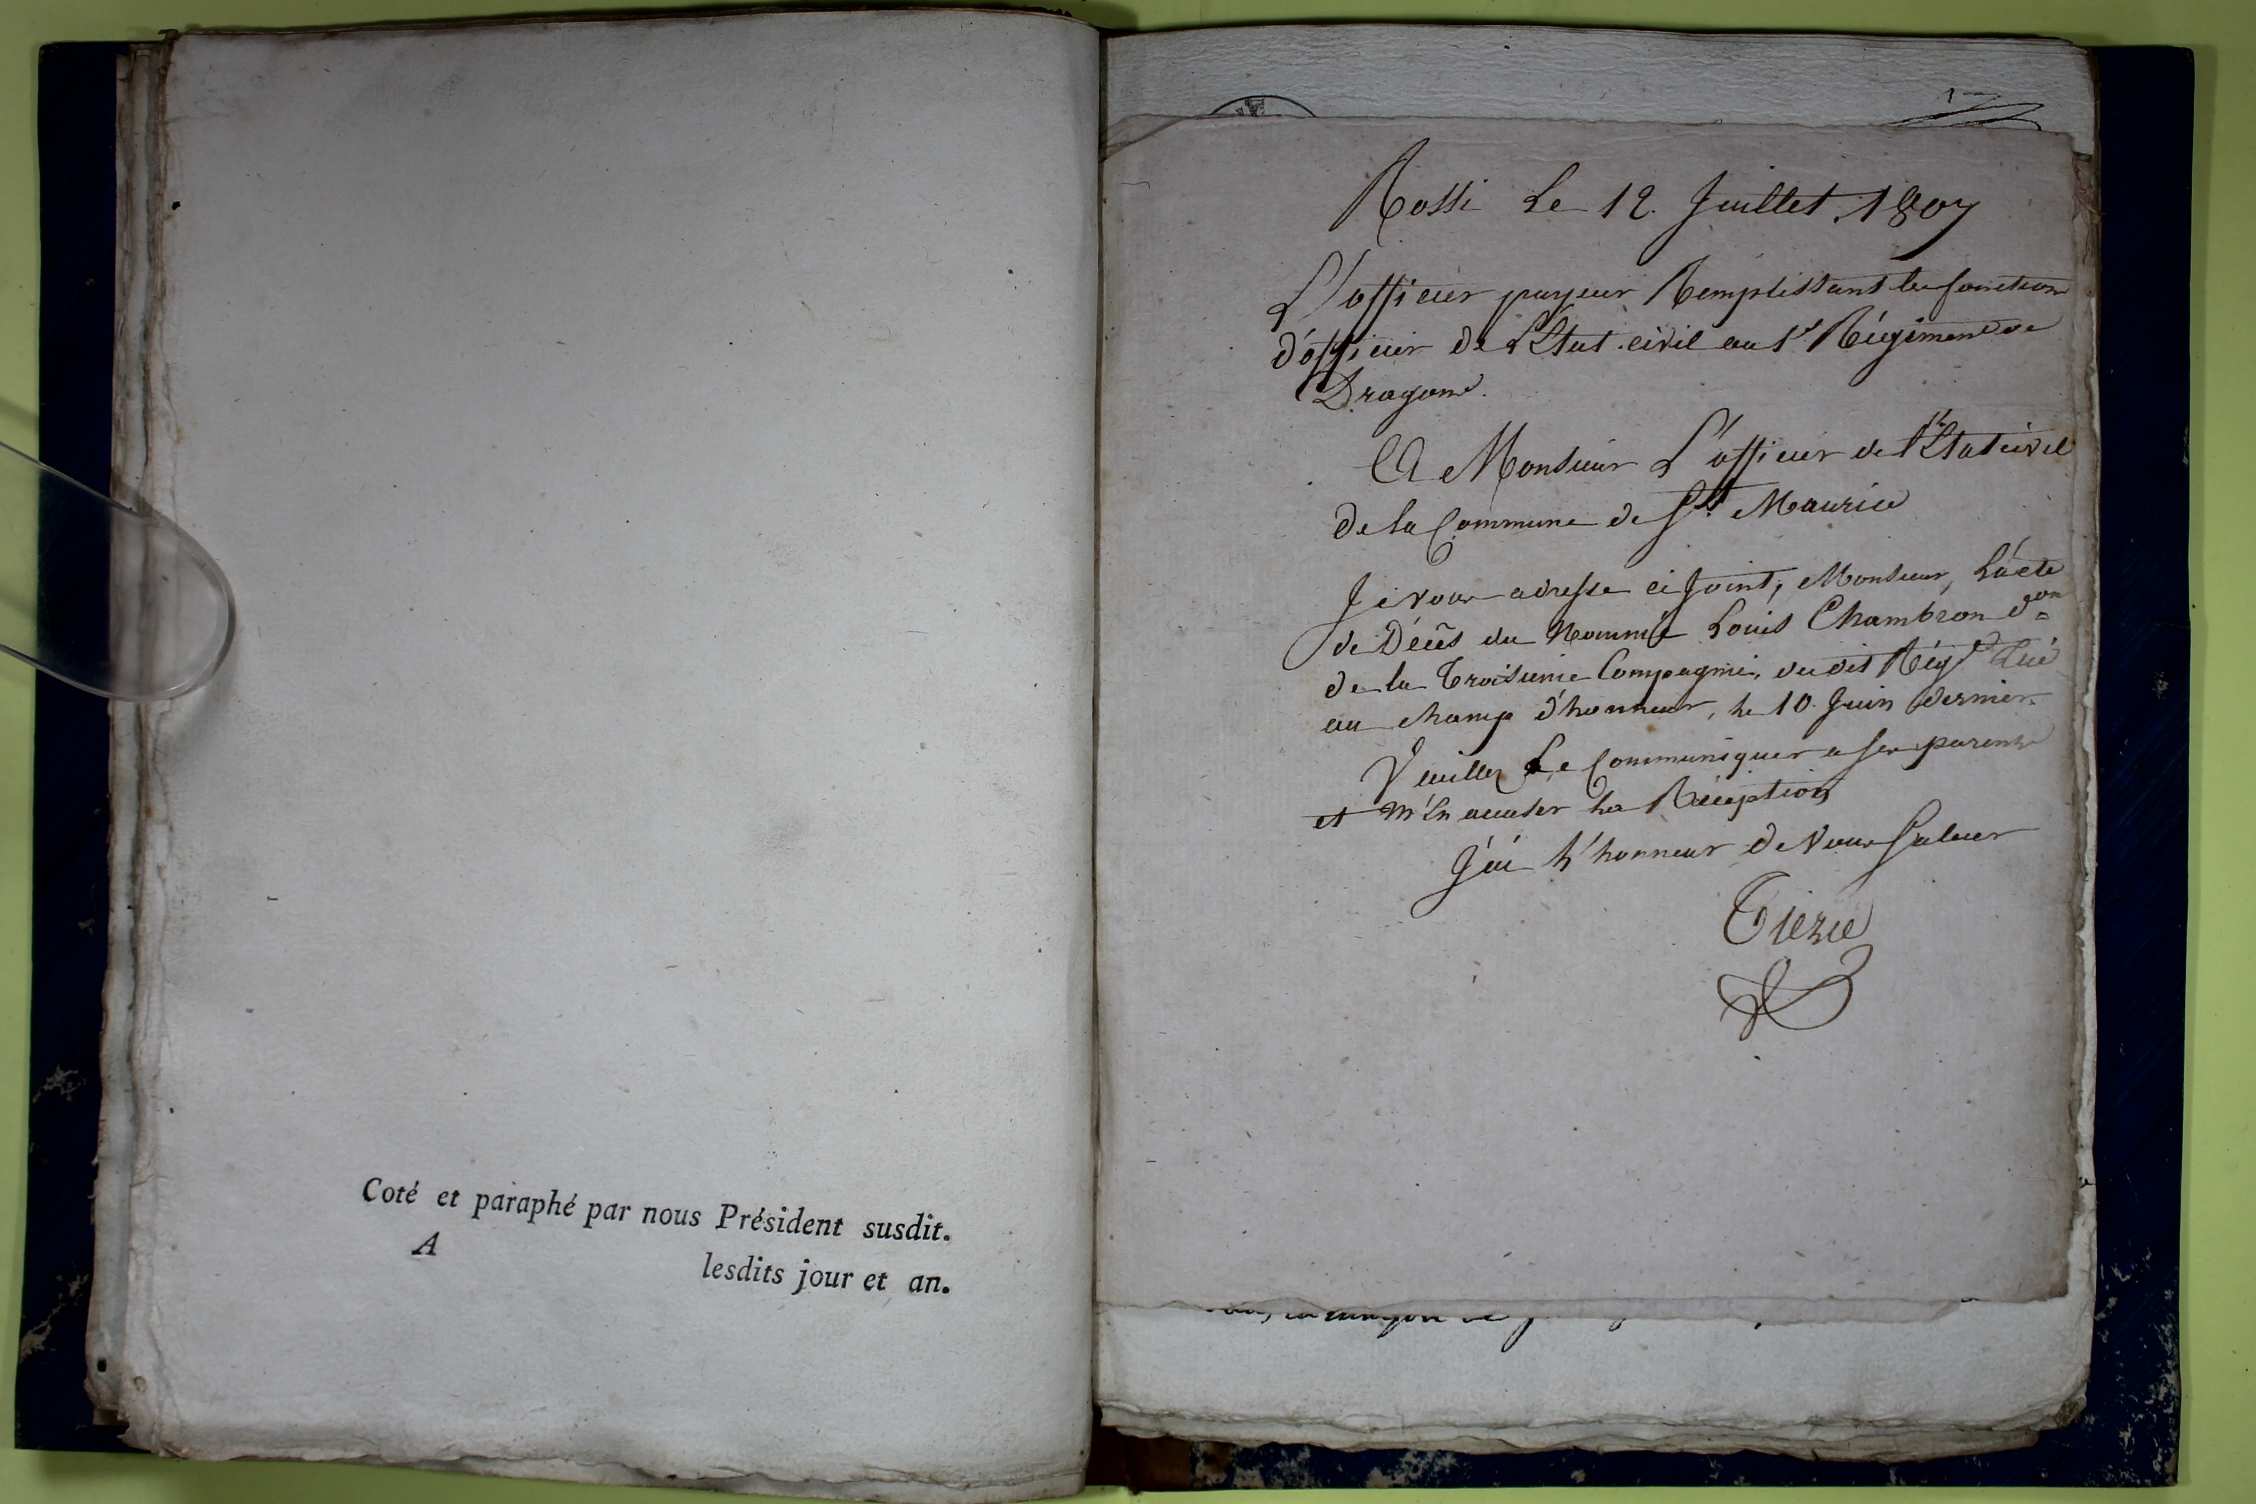 Coté et paraphé par nous Président susdit.
A lesdits jour et an.
Rossi Le 12. Juillet. 1807
L'officier payeur Remplissant les fonction
d'officier de L'Etat civil au 1er Régiment de
Dragons.
A Monsieur L'officier de l'Etat civil
de la Commune de St. Maurice
Je vous adresse ci Joint, Monsieur, L'acte
de Décès du Nommé Louis Chambron d.on
de la Troisieme Compagnie, du dit Régt Tué
au champ d'honneur, le 10 Juin dernier.
Veuillez Le Communiquer a ses parents
et m'En accuser la Réception
J'ai L'honneur de Vous Saluer